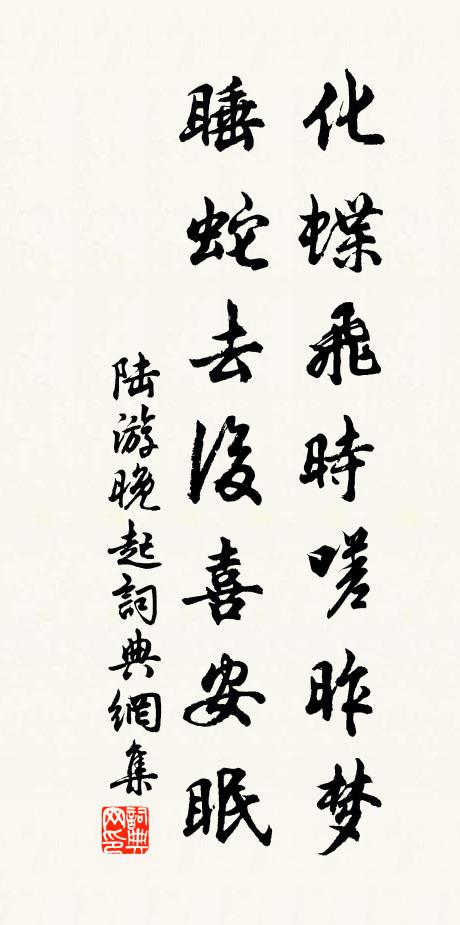 化蝶飛時嗟昨梦
睡蛇去後喜安眠
陆游晚起詞典網集
詞典网印